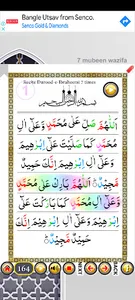 Bangle Utsav from Senco.
Senco Gold & Diamonds
7 mubeen wazifa
Recite Darood e Ibraheemi 7 times
1
اَللّٰهُمَّ صَلِّ عَلٰى مُحَمَّدٍ وَّعَلٰٓى اٰلِ
مُحَمَّدٍ كَمَا صَلَّيْتَ عَلٰٓى
اِبْرٰهِيْمَ وَعَلٰٓى اٰلِ اِبْرٰهِيْمَ اِنَّكَ حَمِيْدٌ
مَّجِيْدٌ اَللّٰهُمَّ بَارِكْ عَلٰى مُحَمَّدٍ
وَّعَلٰٓى اٰلِ مُحَمَّدٍ كَمَا بَارَكْتَ عَلٰٓى
اِبْرٰهِيْمَ وَعَلٰٓى اٰلِ اِبْرٰهِيْمَ اِنَّكَ
حَمِيْدٌ مَّجِيْدٌ
164